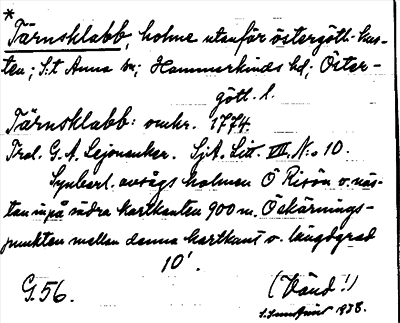 *
Tärnsklabb, holme utanför östergötl. kus-
ten; S:t Anna sn; Hammarkinds hd; Öster-
götl. l.
Tärnsklabb: omkr. 1774.
Trol. G. A. Lejonanker. SjA. Litt. VII. N:o 10.
Synbarl. avsågs holmen Ö Risön v. näs-
tan inpå södra kartkanten 900 m. Ö skärnings-
punkten mellan denna kartkant o. längdgrad
10'.
G. 56.
(Vänd!)
1938.